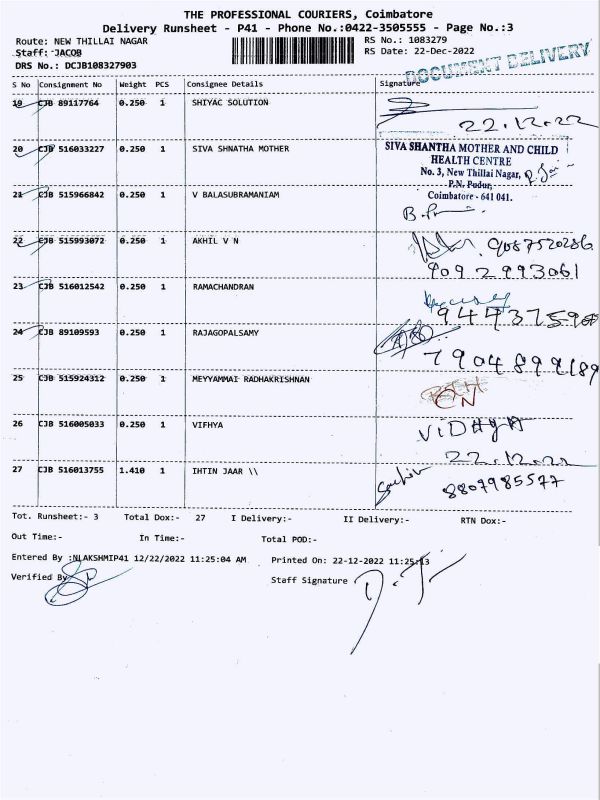 THE PROFESSIONAL COURIERS, Coimbatore
Delivery Runsheet - P41 - Phone No.:0422-3505555 - Page No.:3
Route: NEW THILLAI NAGAR
RS No.: 1083279
Staff: JACOB
RS Date: 22-Dec-2022
DRS No.: DCJB108327903
DOCUMENT DELIVERY
S No Consignment No Weight PCS Consignee Details Signature
19 CJB 89117764 0.250 1 SHIYAC SOLUTION
22.12.22
20 CJB 516033227 0.250 1 SIVA SHNATHA MOTHER
SIVA SHANTHA MOTHER AND CHILD
HEALTH CENTRE
No. 3, New Thillai Nagar,
P.N. Pudur,
Coimbatore - 641 041.
21 CJB 515966842 0.250 1 V BALASUBRAMANIAM
22 CJB 515993072 0.250 1 AKHIL V N
9087520286
9092993061
23 CJB 516012542 0.250 1 RAMACHANDRAN
24 CJB 89109593 0.250 1 RAJAGOPALSAMY
7904899189
25 CJB 515924312 0.250 1 MEYYAMMAI RADHAKRISHNAN
26 CJB 516005033 0.250 1 VIFHYA
ViDHYA
22.12.22
27 CJB 516013755 1.410 1 IHTIN JAAR \\
8807985577
Tot. Runsheet:- 3 Total Dox:- 27 I Delivery:- II Delivery:- RTN Dox:-
Out Time:- In Time:- Total POD:-
Entered By :NLAKSHMIP41 12/22/2022 11:25:04 AM Printed On: 22-12-2022 11:25:13
Verified By
Staff Signature